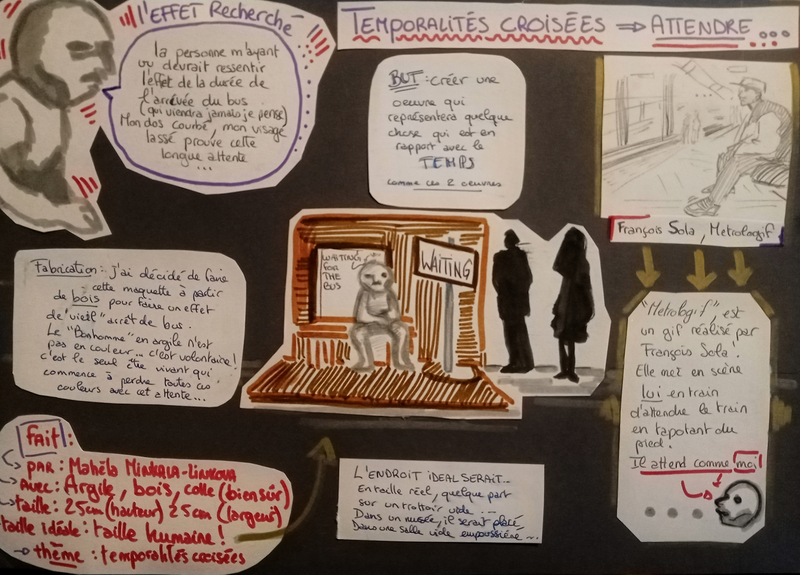 l'EFFET Recherché
la personne m'ayant
vu devrait ressentir
l'effet de la durée de
l'arrivée du bus
(qui viendra jamais je pense)
Mon dos courbé, mon visage
lassé prouve cette
longue attente
...
TEMPORALITÉS CROISÉES ⇒ ATTENDRE...
BUT : créer une
oeuvre qui
représentera quelque
chose qui est en
rapport avec le
TEMPS
comme ces 2 oeuvres
François Sola, Metrologif
Fabrication : j'ai décidé de faire
cette maquette à partir
de bois pour faire un effet
de "vieil" arrêt de bus.
Le "Bonhomme" en argile n'est
pas en couleur... c'est volontaire !
c'est le seul être vivant qui
commence à perdre toutes ces
couleurs avec cet attente...
WAITING
FOR
THE
BUS
WAITING
"Metrologif", est
un gif réalisé par
François Sola.
Elle met en scène
lui en train
d'attendre le train
en tapotant du
pied.
Il attend comme moi !
Fait :
par : Mahëla Minkala-Linkova
avec : Argile, bois, colle (bien sûr)
taille : 25cm (hauteur) 25cm (largeur)
taille idéale : taille humaine !
thème : temporalités croisées
L'ENDROIT IDEAL SERAIT...
En taille réel, quelque part
sur un trottoir vide...
Dans un musée, il serait placé
Dans une salle vide empoussiérée...